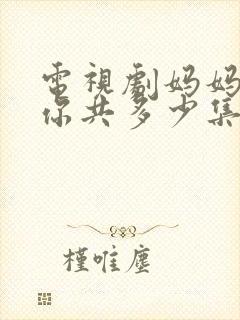 電視劇妈妈
你共多少集
槿唯塵